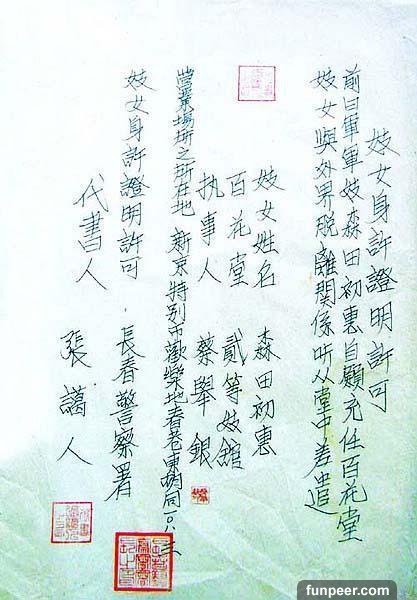 妓女身許證明許可
前日軍軍妓森田初惠自願充任百花堂
妓女與外界脱離關係听从堂中差遣
妓女姓名 森田初惠
百花堂 貳等妓舘
执事人 蔡舉銀
營業場所之所在地 新京特別市歡樂地春巷東胡同一〇八之三
妓女身許證明許可 長春警察署
代書人 張藹人
funpeer.com